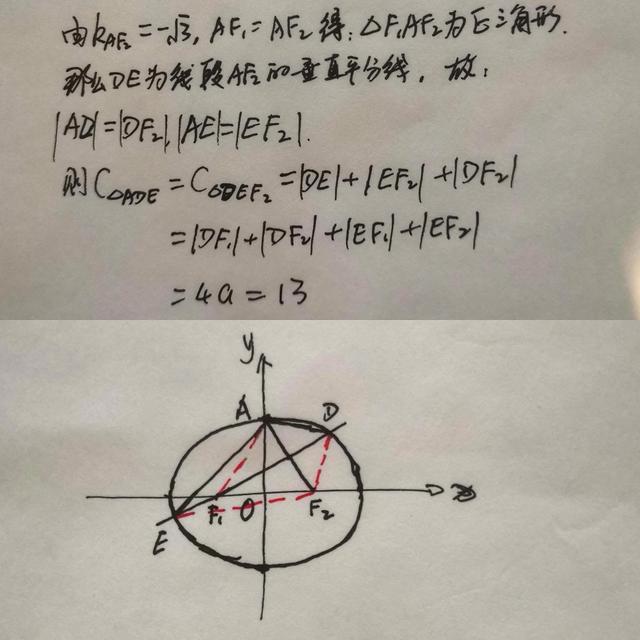 由k_{AF₂}=-√3, AF₁=AF₂得: △F₁AF₂为正三角形.
那么DE为线段AF₂的垂直平分线, 故:
|AD|=|DF₂|,|AE|=|EF₂|.
则C_{△ADE}=C_{△DEF₂}=|DE|+|EF₂|+|DF₂|
=|DF₁|+|DF₂|+|EF₁|+|EF₂|
=4a=13
y
A D
F₁ O F₂ x
E